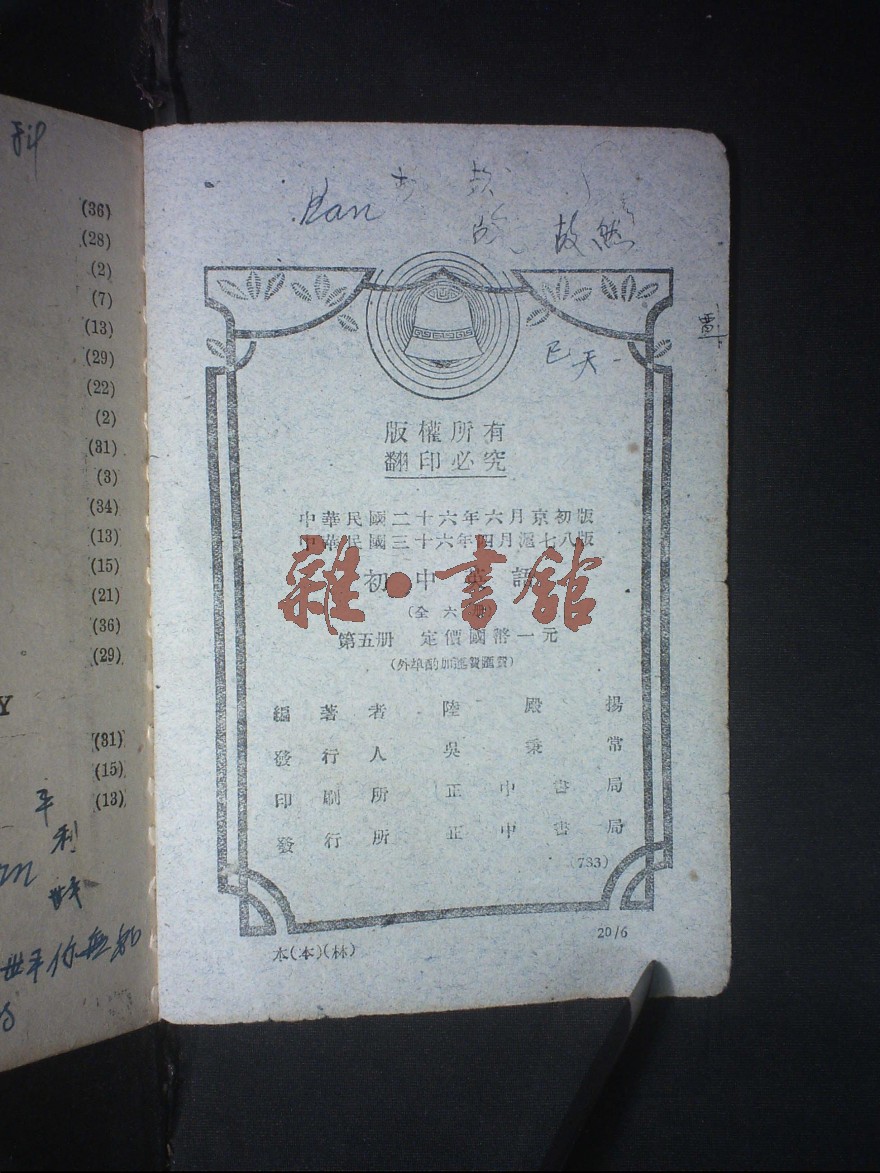 (36)
(28)
(2)
(7)
(13)
(29)
(22)
(2)
(31)
(3)
(34)
(13)
(15)
(21)
(36)
(29)
Y
(31)
(15)
(13)
平
利
故然
天
版權所有
翻印必究
中華民國二十六年六月京初版
中華民國三十六年四月滬七八版
初中英語
雜·書館
(全六冊)
第五册 定價國幣一元
(外埠酌加運費匯費)
編著者 陸殿揚
發行人 吳秉常
印刷所 正中書局
發行所 正中書局
(733)
本(本)(林)
20/6